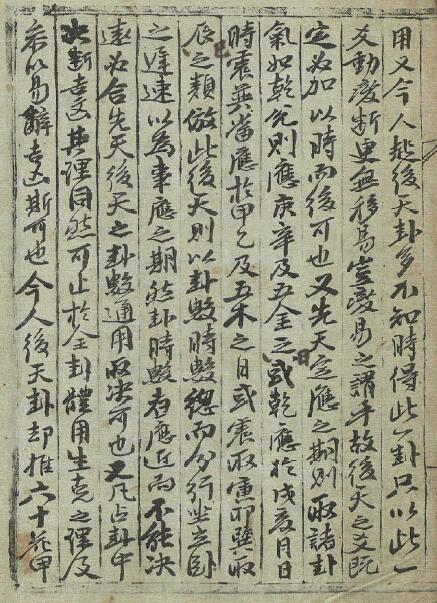 用又今人起後天卦多不知時得此一卦只以此一
爻動變断更無移易豈變易之謂乎故後天之爻既
定必加以時而後可也又先天定應之期則取諸卦
氣如乾兌則應庚辛及五金之日或乾應於戌亥月日
時震巽當應於甲乙及五木之日或震取寅卯巽取
辰之類倣此後天則以卦數時數總而分行坐立卧
之遲速以為事應之期然卦時數者應近而不能决
遠必合先天後天之卦數通用取决可也又凡占卦中
决断吉凶其理固然可止於全卦體用生克之理及
參以易辭吉凶斯可也今人後天卦却推六十花甲